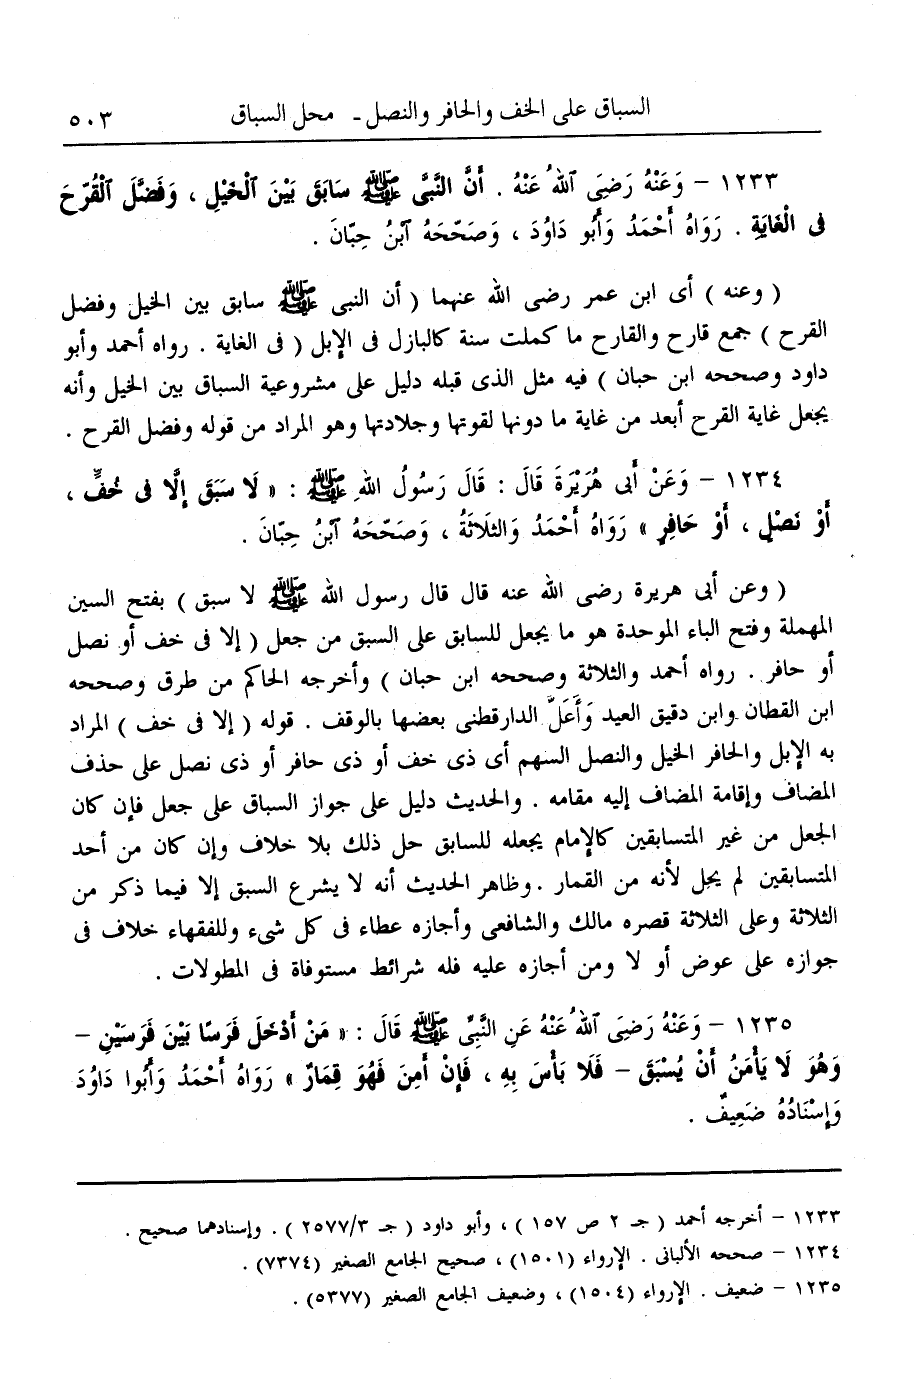 السباق على الخف والحافر والنصل - محل السباق ٥٠٣
١٢٣٣ – وَعَنْهُ رَضِىَ ٱللهُ عَنْهُ . أَنَّ النَّبِىَّ ﷺ سَابَقَ بَيْنَ ٱلْخَيْلِ ، وَفَضَّلَ ٱلْقُرَّحَ
فِى الْغَايَةِ . رَوَاهُ أَحْمَدُ وَأَبُو دَاوُدَ ، وَصَحَّحَهُ ٱبْنُ حِبَّانَ .
( وعنه ) أى ابن عمر رضى الله عنهما ( أن النبى ﷺ سابق بين الخيل وفضل
القرح ) جمع قارح والقارح ما كملت سنة كالبازل فى الإبل ( فى الغاية . رواه أحمد وأبو
داود وصححه ابن حبان ) فيه مثل الذى قبله دليل على مشروعية السباق بين الخيل وأنه
يجعل غاية القرح أبعد من غاية ما دونها لقوتها وجلادتها وهو المراد من قوله وفضل القرح .
١٢٣٤ – وَعَنْ أَبِى هُرَيْرَةَ قَالَ : قَالَ رَسُولُ اللهِ ﷺ : « لَا سَبَقَ إِلَّا فِى خُفٍّ ،
أَوْ نَصْلٍ ، أَوْ حَافِرٍ » رَوَاهُ أَحْمَدُ وَالثَلَاثَةُ ، وَصَحَّحَهُ ٱبْنُ حِبَّانَ .
( وعن أبى هريرة رضى الله عنه قال قال رسول الله ﷺ لا سبق ) بفتح السين
المهملة وفتح الباء الموحدة هو ما يجعل للسابق على السبق من جعل ( إلا فى خف أو نصل
أو حافر . رواه أحمد والثلاثة وصححه ابن حبان ) وأخرجه الحاكم من طرق وصححه
ابن القطان وابن دقيق العيد وَأَعَلَّ الدارقطنى بعضها بالوقف . قوله ( إلا فى خف ) المراد
به الإبل والحافر الخيل والنصل السهم أى ذى خف أو ذى حافر أو ذى نصل على حذف
المضاف وإقامة المضاف إليه مقامه . والحديث دليل على جواز السباق على جعل فإن كان
الجعل من غير المتسابقين كالإمام يجعله للسابق حل ذلك بلا خلاف وإن كان من أحد
المتسابقين لم يحل لأنه من القمار . وظاهر الحديث أنه لا يشرع السبق إلا فيما ذكر من
الثلاثة وعلى الثلاثة قصره مالك والشافعى وأجازه عطاء فى كل شىء وللفقهاء خلاف فى
جوازه على عوض أو لا ومن أجازه عليه فله شرائط مستوفاة فى المطولات .
١٢٣٥ – وَعَنْهُ رَضِىَ ٱللهُ عَنْهُ عَنِ النَّبِىِّ ﷺ قَالَ : « مَنْ أَدْخَلَ فَرَسًا بَيْنَ فَرَسَيْنِ –
وَهُوَ لَا يَأْمَنُ أَنْ يُسْبَقَ – فَلَا بَأْسَ بِهِ ، فَإِنْ أَمِنَ فَهُوَ قِمَارٌ » رَوَاهُ أَحْمَدُ وَأَبُوا دَاوُدَ
وَإِسْنَادُهُ ضَعِيفٌ .
١٢٣٣ – أخرجه أحمد ( جـ ٢ ص ١٥٧ ) ، وأبو داود ( جـ ٢٥٧٧/٣ ) . وإسنادهما صحيح .
١٢٣٤ – صححه الألبانى . الإرواء (١٥٠١) ، صحيح الجامع الصغير (٧٣٧٤) .
١٢٣٥ – ضعيف . الإرواء (١٥٠٤) ، وضعيف الجامع الصغير (٥٣٧٧) .